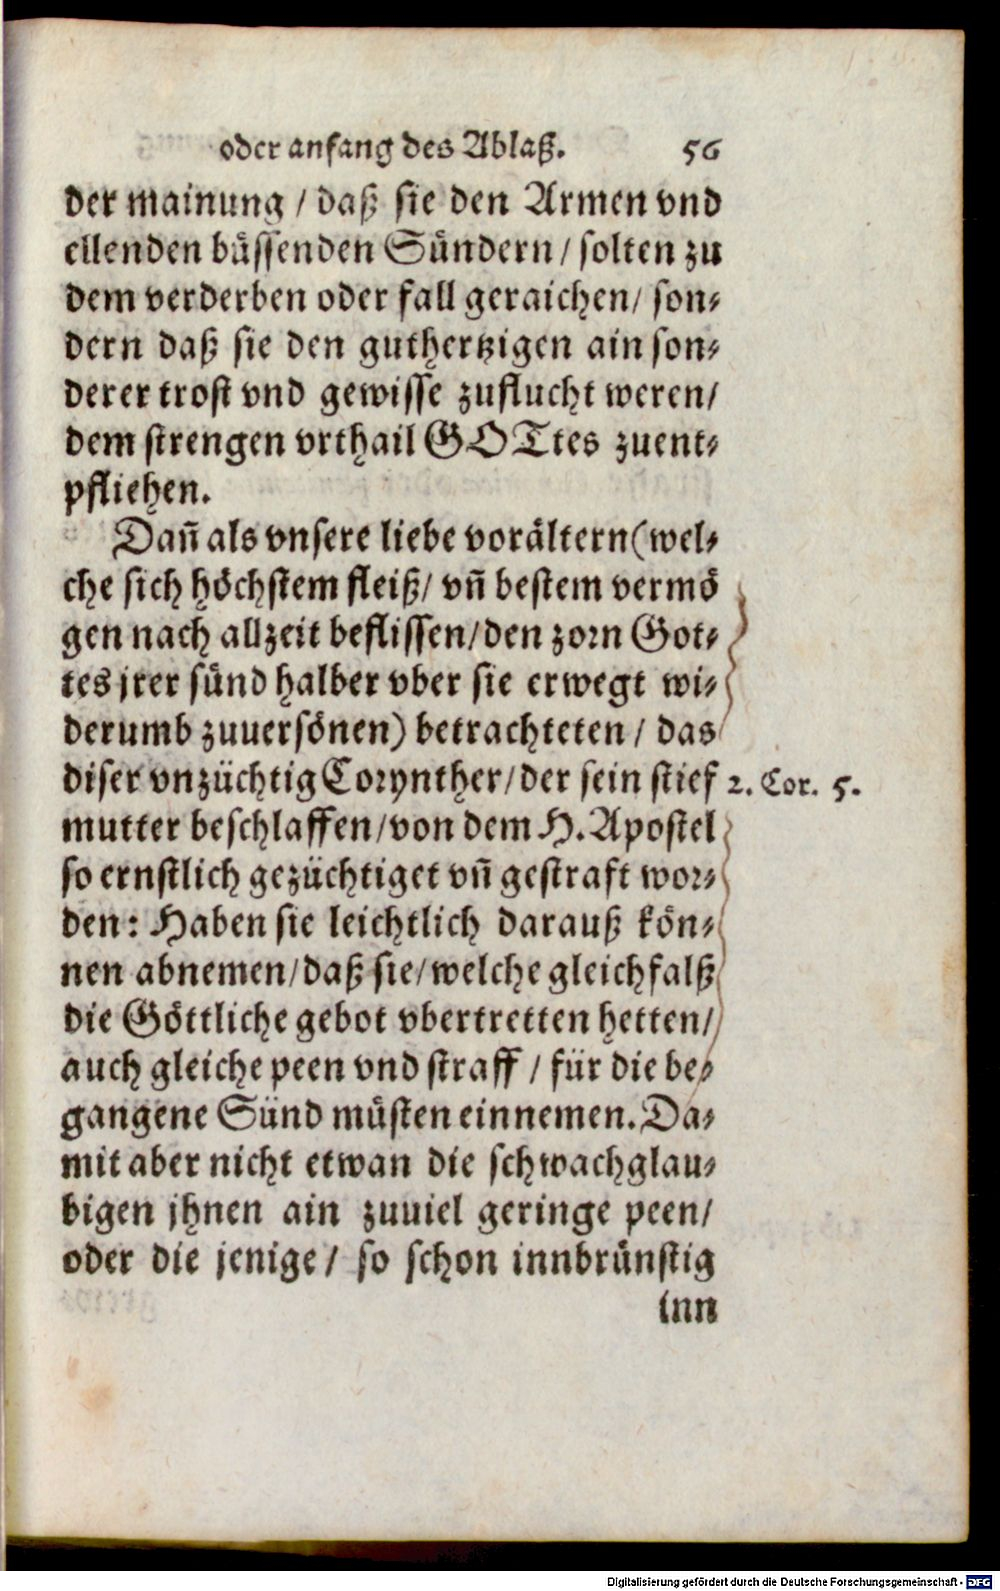 oder anfang des Ablaß. 56
der mainung / daß sie den Armen vnd
ellenden büssenden Sündern / solten zu
dem verderben oder fall geraichen / son-
dern daß sie den guthertzigen ain son-
derer trost vnd gewisse zuflucht weren /
dem strengen vrthail GOTtes zuent-
pfliehen.
Dañ als vnsere liebe vorältern (wel-
che sich höchstem fleiß / vñ bestem vermö
gen nach allzeit beflissen / den zorn Got-
tes jrer sünd halber vber sie erwegt wi-
derumb zuuersönen) betrachteten / das
diser vnzüchtig Corynther / der sein stief
2. Cor. 5.
mutter beschlaffen / von dem H. Apostel
so ernstlich gezüchtiget vñ gestraft wor-
den: Haben sie leichtlich darauß kön-
nen abnemen / daß sie / welche gleichfalß
die Göttliche gebot vbertretten hetten /
auch gleiche peen vnd straff / für die be-
gangene Sünd müsten einnemen. Da-
mit aber nicht etwan die schwachglau-
bigen jhnen ain zuuiel geringe peen /
oder die jenige / so schon innbrünstig
inn
Digitalisierung gefördert durch die Deutsche Forschungsgemeinschaft - DFG